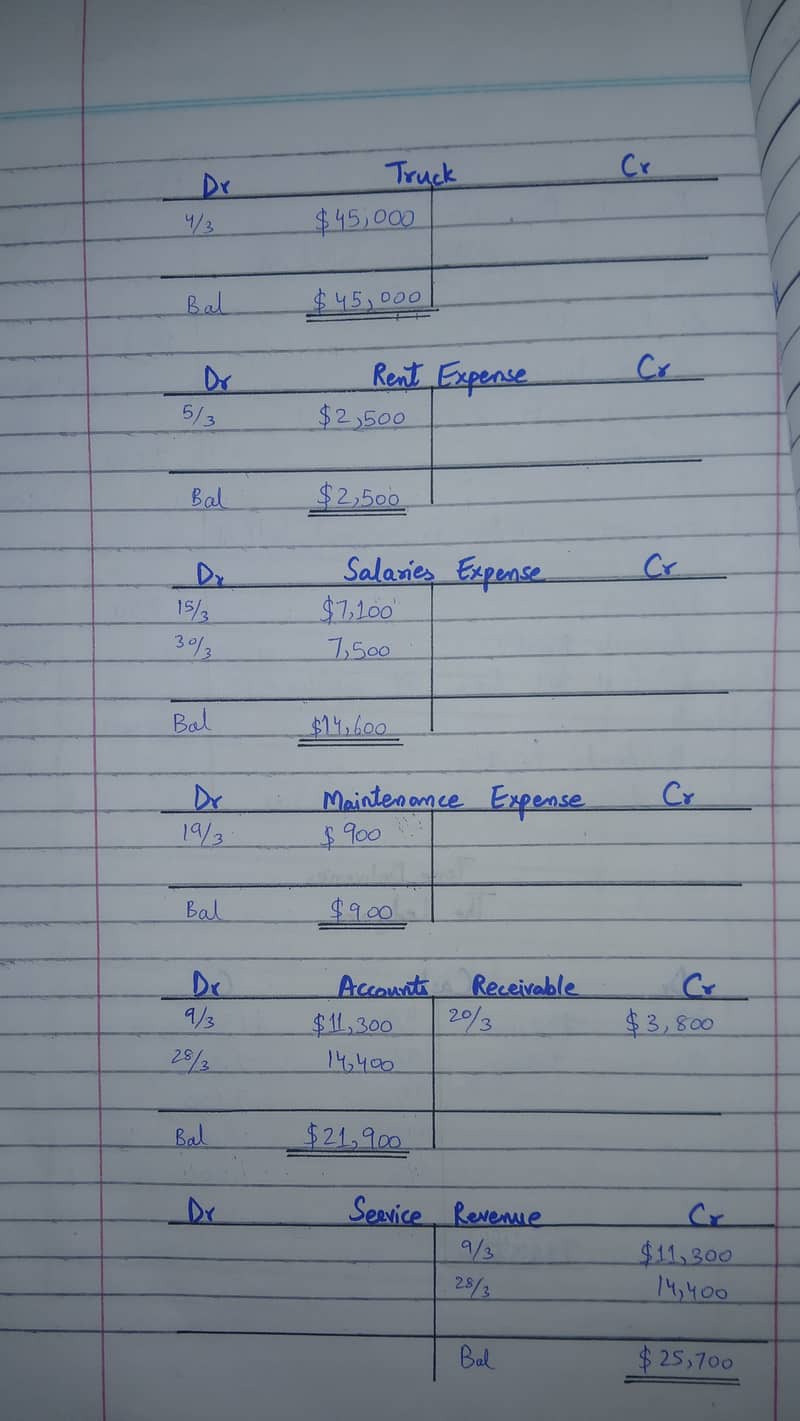 Dr Truck Cr
4/3 $45,000
Bal $45,000
Dr Rent Expense Cr
5/3 $2,500
Bal $2,500
Dr Salaries Expense Cr
15/3 $7,100
30/3 7,500
Bal $14,600
Dr Maintenance Expense Cr
19/3 $900
Bal $900
Dr Accounts Receivable Cr
9/3 $11,300 20/3 $3,800
28/3 14,400
Bal $21,900
Dr Service Revenue Cr
9/3 $11,300
28/3 14,400
Bal $25,700